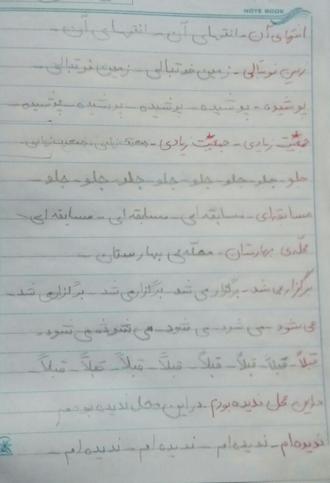 NOTE BOOK
انتهای آن - انتهای آن - انتهای آن -
زمین فوتبالی - زمین فوتبالی - زمین فوتبالی -
پوشیده - پوشیده - پوشیده - پوشیده - پوشیده
جمعیت زیادی - جمعیت زیادی -
جلو - جلو - جلو - جلو - جلو - جلو - جلو -
مسابقه‌ای - مسابقه ای - مسابقه ای - مسابقه ای
محله‌ی بهارستان - محله‌ی بهارستان -
برگزار می شد - برگزار می شد - برگزار می شد -
می شود - می شود - می شود - می شود -
قبلاً - قبلاً - قبلاً - قبلاً - قبلاً - قبلاً - قبلاً -
در این محل ندیده بودم - در این محل ندیده بودم
ندیده‌ام - ندیده ام - ندیده ام - ندیده ام -